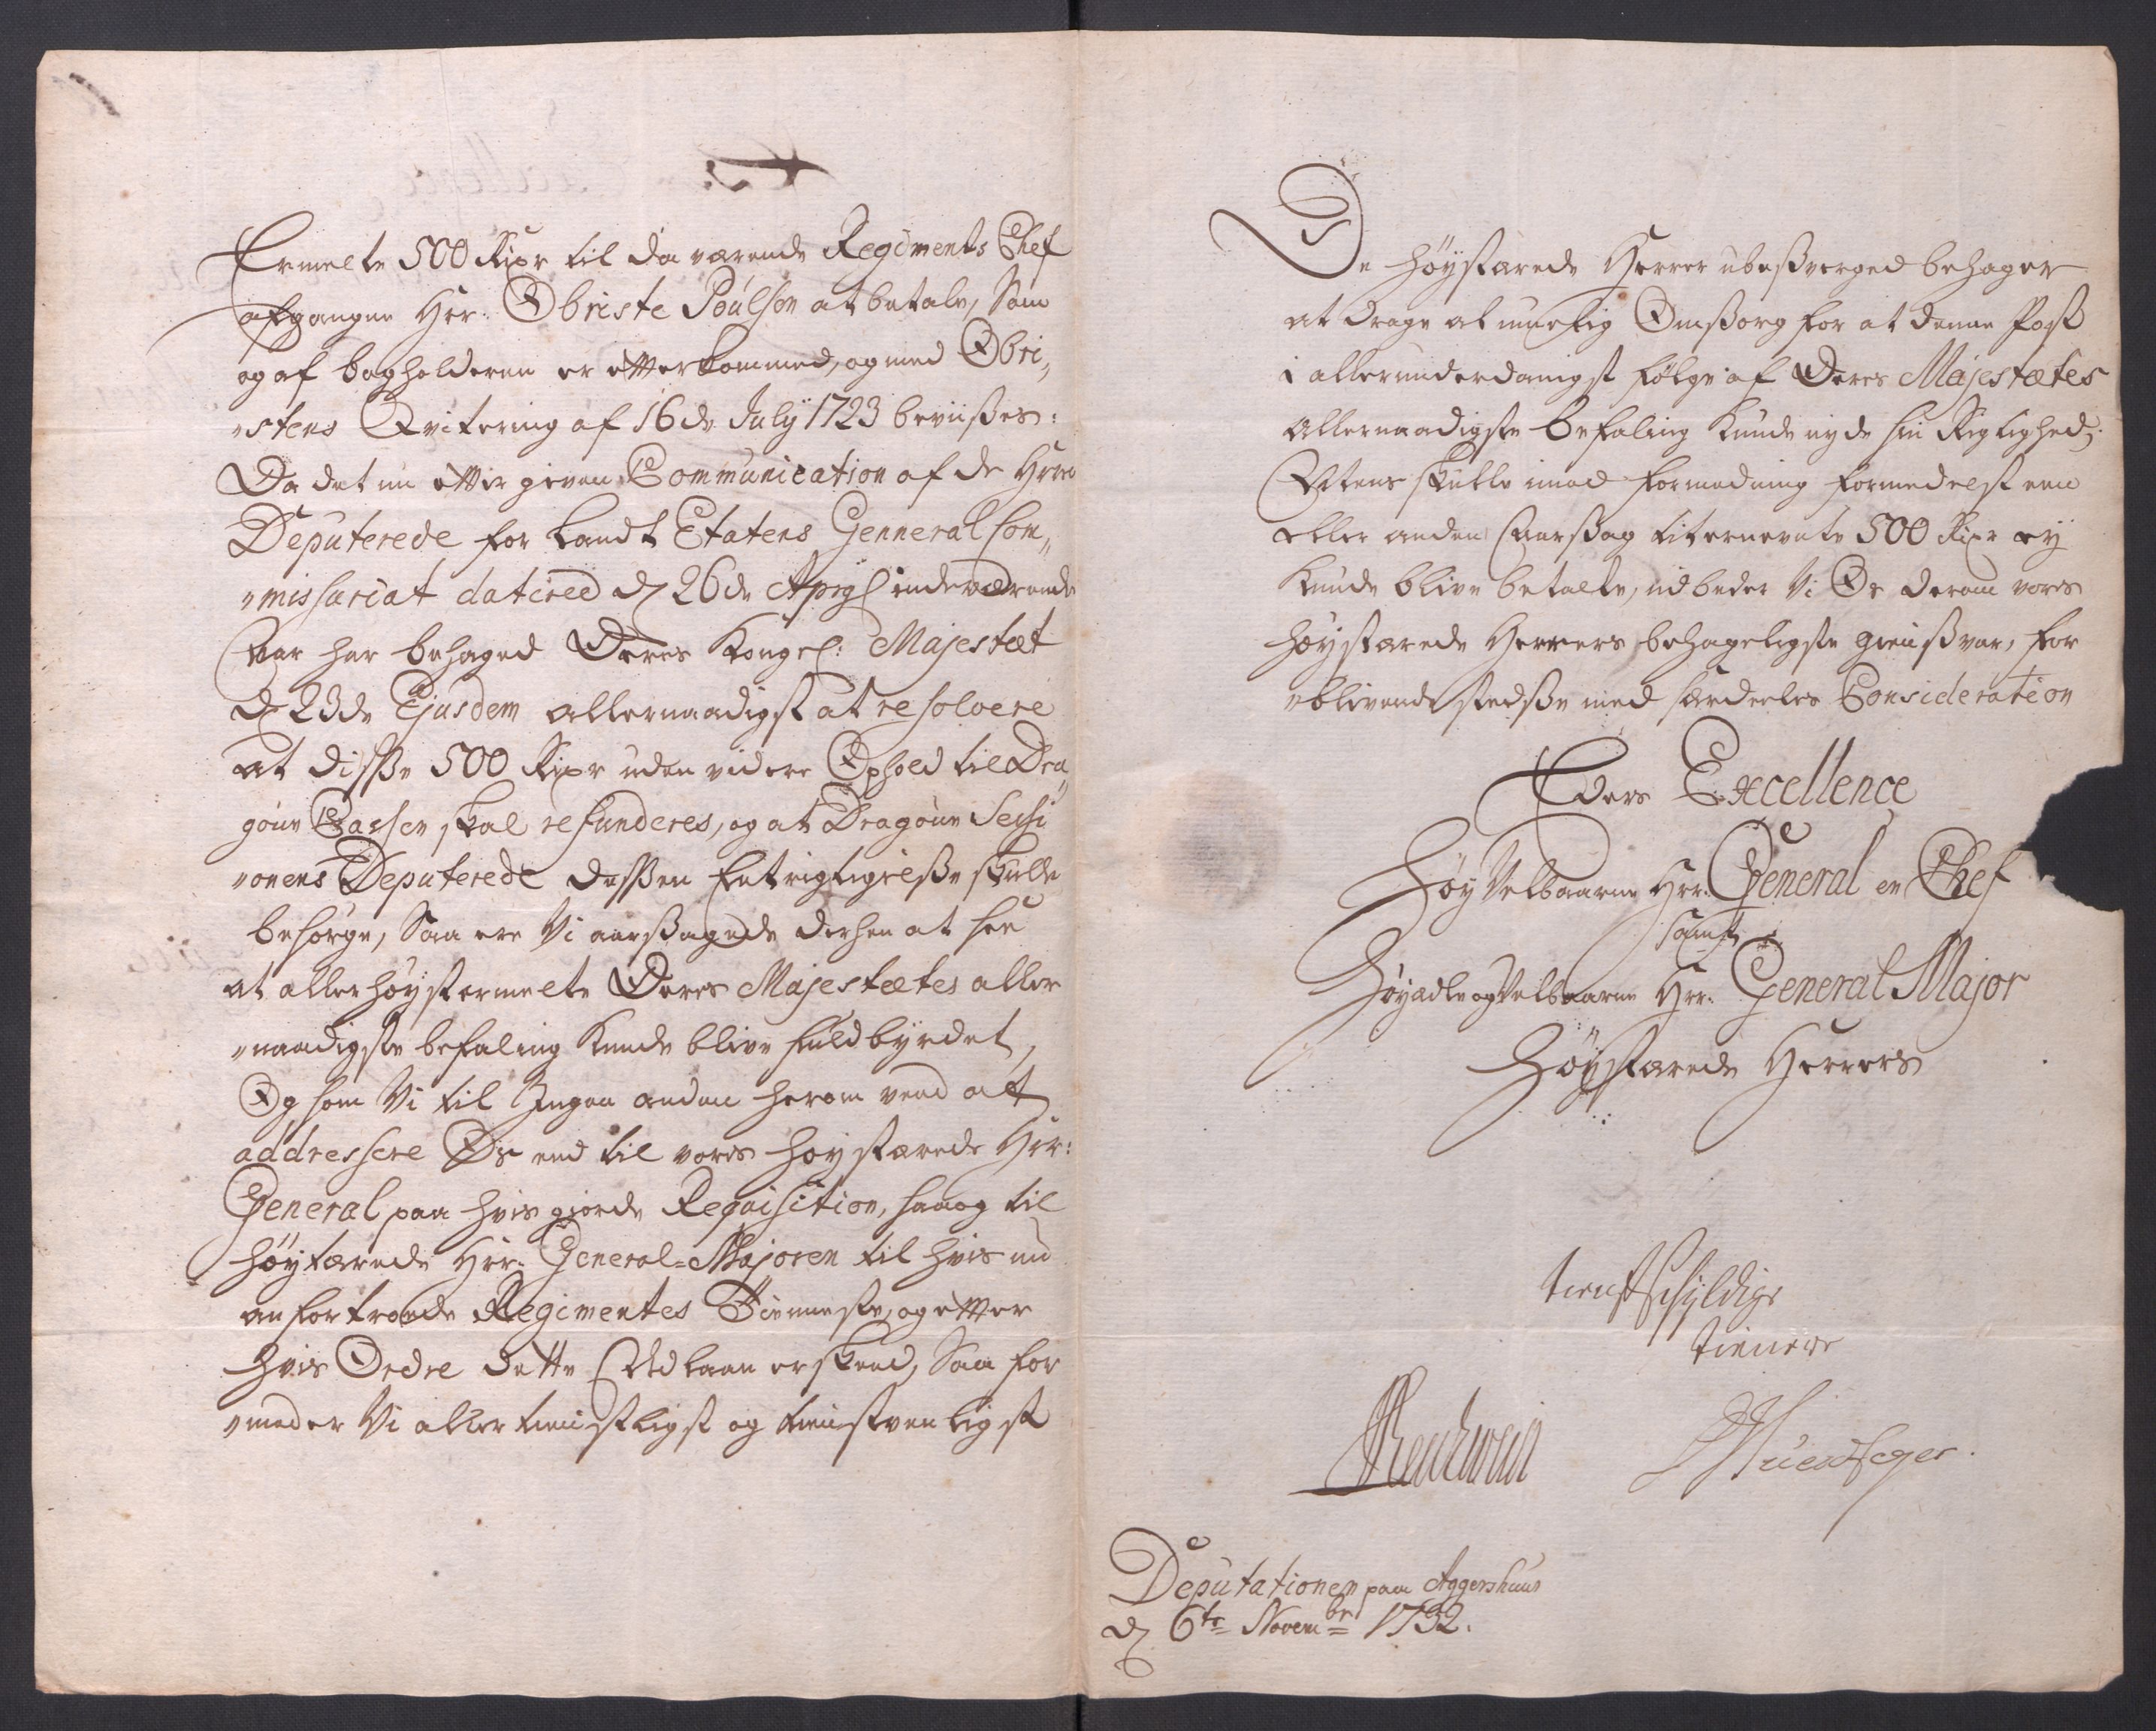 Ermelte 500 Rixr til da værende Regiments Chef
afgangne Hr: Obriste Poulson at betale, Som
og af bogholderen er etterkommed, og med Obri„
„stens Qvitering af 16de July 1723 beviißes:
Da det nu etter given Communication af de Hrrer
Deputerede for Landt Etatens Genneral Com„
„missariat datered d 26de Apryl indeværende
Aar har behaged Deres Kongel: Majestæt
d 23de Ejusdem allernaadigst at resolvere
at disße 500 Rixr uden videre Ophold til Dra„
goun Cassen skal refunderes, og at Dragoun Sessi
„onens Deputerede desßen Entrigtigelsße skulle
besørge, Saa ere Vi aarßagede derhen at see
at aller høystermelte Deres Majestætes aller
„naadigste befaling kunde blive fuldbyrdet,
Og som Vi til Ingen anden herom veed at
addressere Os end til vores høystærede Hrr:
General paa hvis giorde Requisition, saa og til
høytærede Hrr: General-Majoren til hvis nu
anfortroede Regimentes Tienneste, og etter
hvis Ordre dette Udlaan er skeed, Saa for
„moder Vi aller tienstligst og tienstvenligst
De Høystærede Herrer ubesßverged behager
at drage al muelig Omsßorg for at denne Post
i allerunderdanigst følge af Deres Majestætes
Allernaadigste befaling kunde nyde sin Rigtighed;
Ellers skulle imod formodning formedelst een
eller anden Aarßag bitermente 500 Rixr ey
kunde blive betalte, udbeder Vi Os derom vores
høystærede Herrers behageligste giensßvar, for
„blivende stedsße med særdeeles Consideration
Eders Excellence
Høy Velbaarne Hrr. General en Chef
samt
Høyædle og Velbaarne Hrr. General Major
Høystærede Herrers
tienstschyldige
tienere
Deputationen paa Aggershuus
d 6te Novembr 1732.